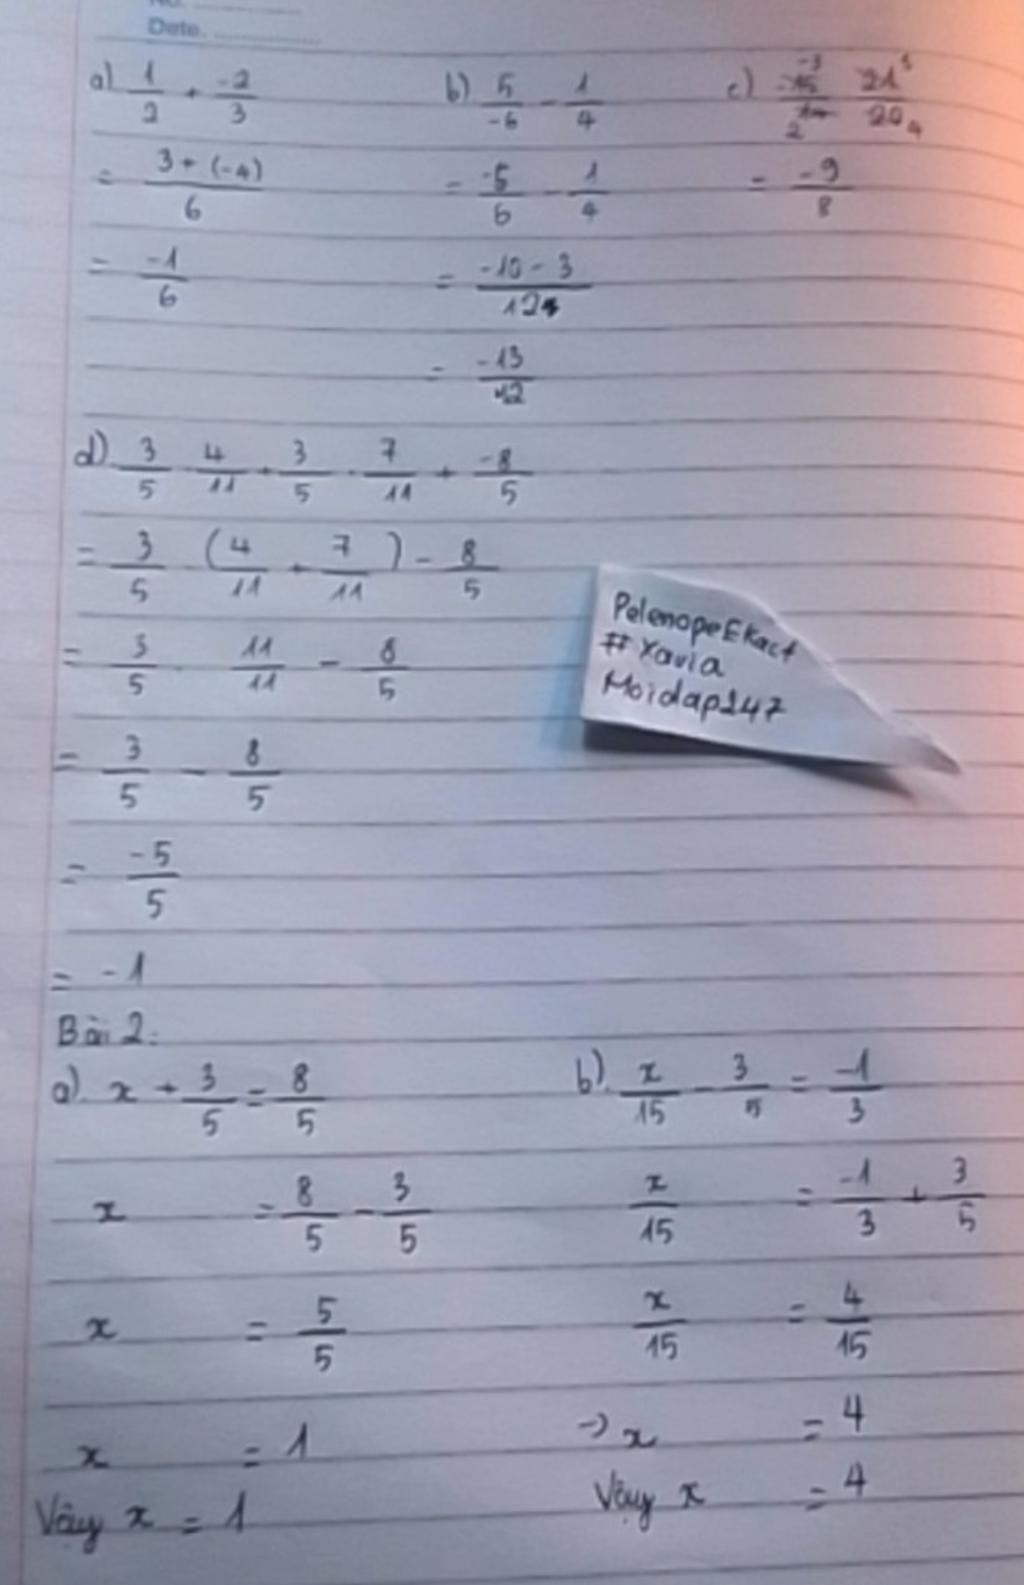 No. ............
Date. ............
a) 1/2 + -2/3
= 3 + (-4)/6
= -1/6
b) 5/-6 - 1/4
= -5/6 - 1/4
= -10 - 3/12
= -13/12
c)
= -9/8
d) 3/5 · 4/11 + 3/5 · 7/11 + -8/5
= 3/5 · (4/11 + 7/11) - 8/5
= 3/5 · 11/11 - 8/5
= 3/5 - 8/5
= -5/5
= -1
PelenopeEkact
# Xavia
Moidap247
Bài 2:
a) x + 3/5 = 8/5
x = 8/5 - 3/5
x = 5/5
x = 1
Vậy x = 1
b) x/15 - 3/5 = -1/3
x/15 = -1/3 + 3/5
x/15 = 4/15
-> x = 4
Vậy x = 4